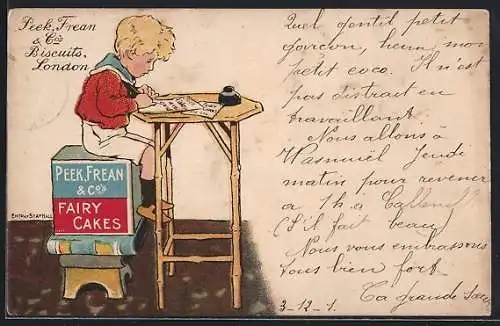 Peek, Frean
& Co's
Biscuits,
London
PEEK, FREAN
& Co's
FAIRY
CAKES
Quel gentil petit
garçon, hein, mon
petit coco. Il n'est
pas distrait en
travaillant.
Nous allons à
Wasmuël Jeudi
matin pour revenir
a 1h à
(S'il fait beau)
Nous vous embrassons
tous bien fort.
Ta grande
3-12-1.